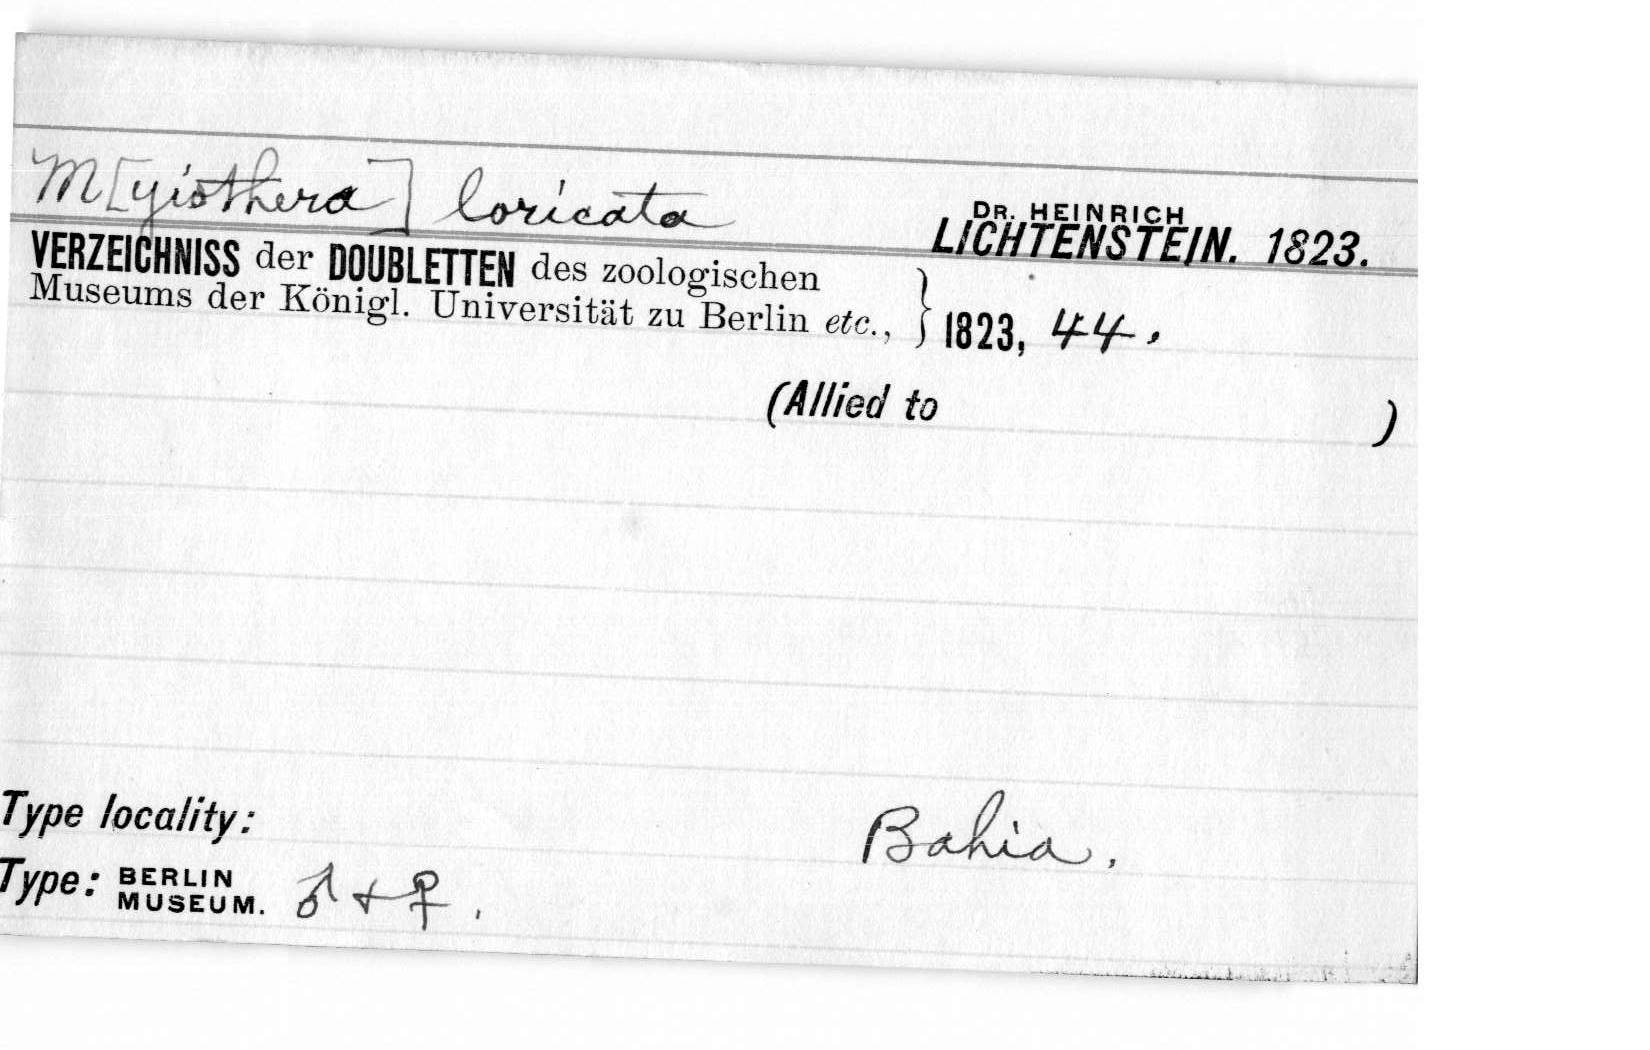 M[yiothera] loricata
DR. HEINRICH
LICHTENSTEIN. 1823.
VERZEICHNISS der DOUBLETTEN des zoologischen
Museums der Königl. Universität zu Berlin etc., } 1823, 44.
(Allied to )
Type locality: Bahia.
Type: BERLIN MUSEUM. ♂ + ♀.